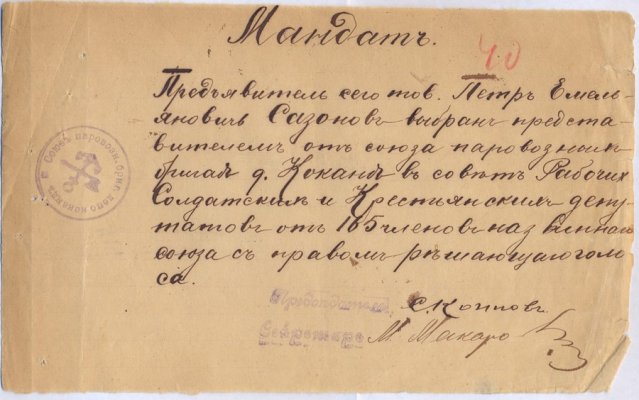 Мандатъ.
40
Предъявитель сего тов. Петръ Емель-
яновичъ Сазоновъ выбранъ предста-
вителемъ отъ союза паровозныхъ
бригадъ д. Кокандъ въ совѣтъ Рабочихъ
Солдатскихъ и Крестьянскихъ депу-
татовъ отъ 165 членовъ наз
союза съ правомъ рѣшающаго голо
са.
Союзъ паровозн. бриг. депо Кокандъ
Предсѣдатель
Секретарь М. Макаро